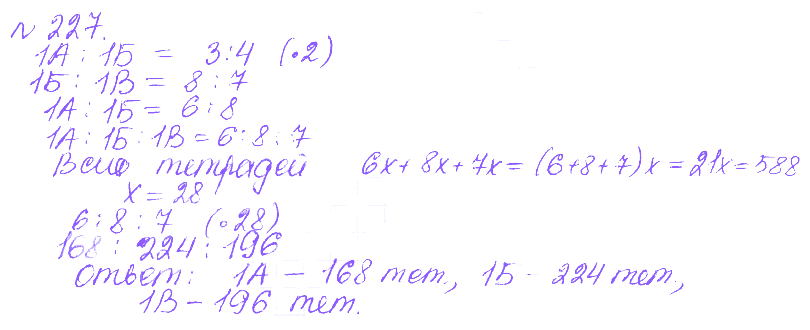 № 227.
1А : 1Б = 3:4 (·2)
1Б : 1В = 8 : 7
1А : 1Б = 6 : 8
1А : 1Б : 1В = 6 : 8 : 7
Всего тетрадей 6x + 8x + 7x = (6+8+7)x = 21x = 588
x = 28
6 : 8 : 7 (·28)
168 : 224 : 196
Ответ: 1А – 168 тет, 1Б – 224 тет,
1В – 196 тет.